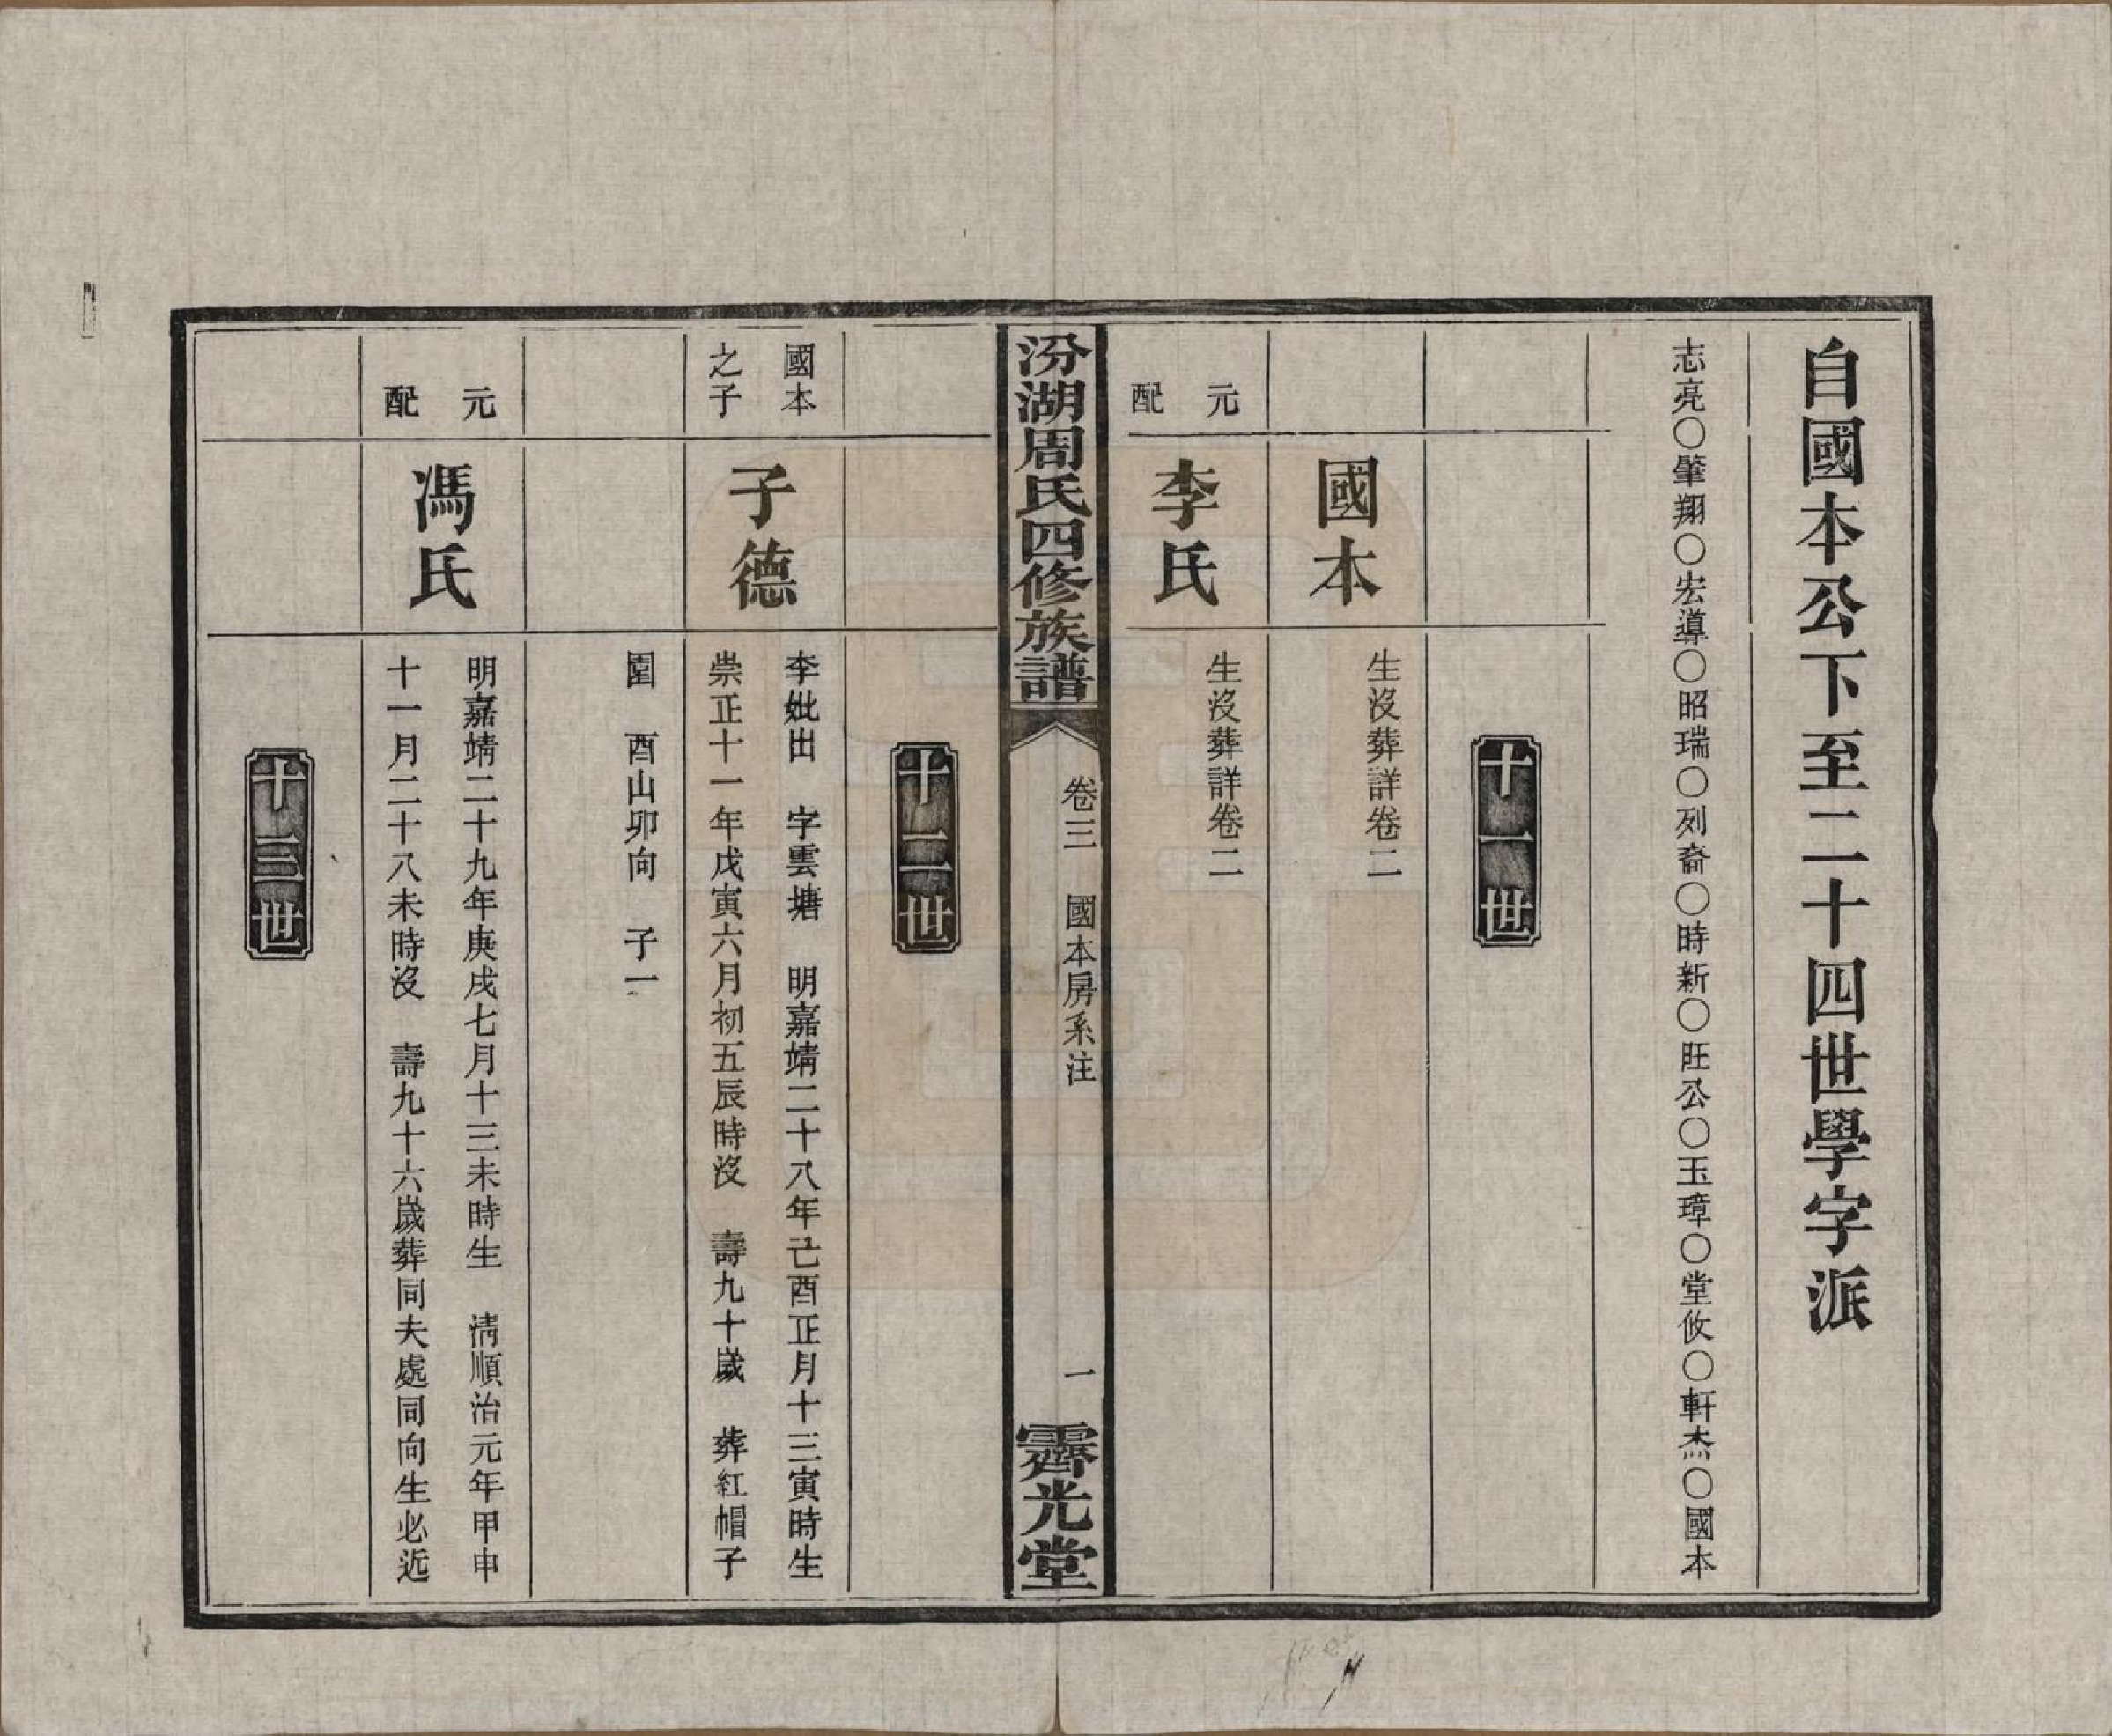 自國本公下至二十四世學字派
志亮○肇翔○宏導○昭瑞○列裔○時新○旺公○玉璋○堂攸○軒杰○國本
十一世
國本
生沒葬詳卷二
元配
李氏
生沒葬詳卷二
汾湖周氏四修族譜
卷三 國本房系注
一
霽光堂
十二世
國本之子
子德
李妣出 字雲塘 明嘉靖二十八年己酉正月十三寅時生
崇正十一年戊寅六月初五辰時沒 壽九十歲 葬紅帽子
園 酉山卯向 子一
元配
馮氏
明嘉靖二十九年庚戌七月十三未時生 清順治元年甲申
十一月二十八未時沒 壽九十六歲葬同夫處同向生必近
十三世